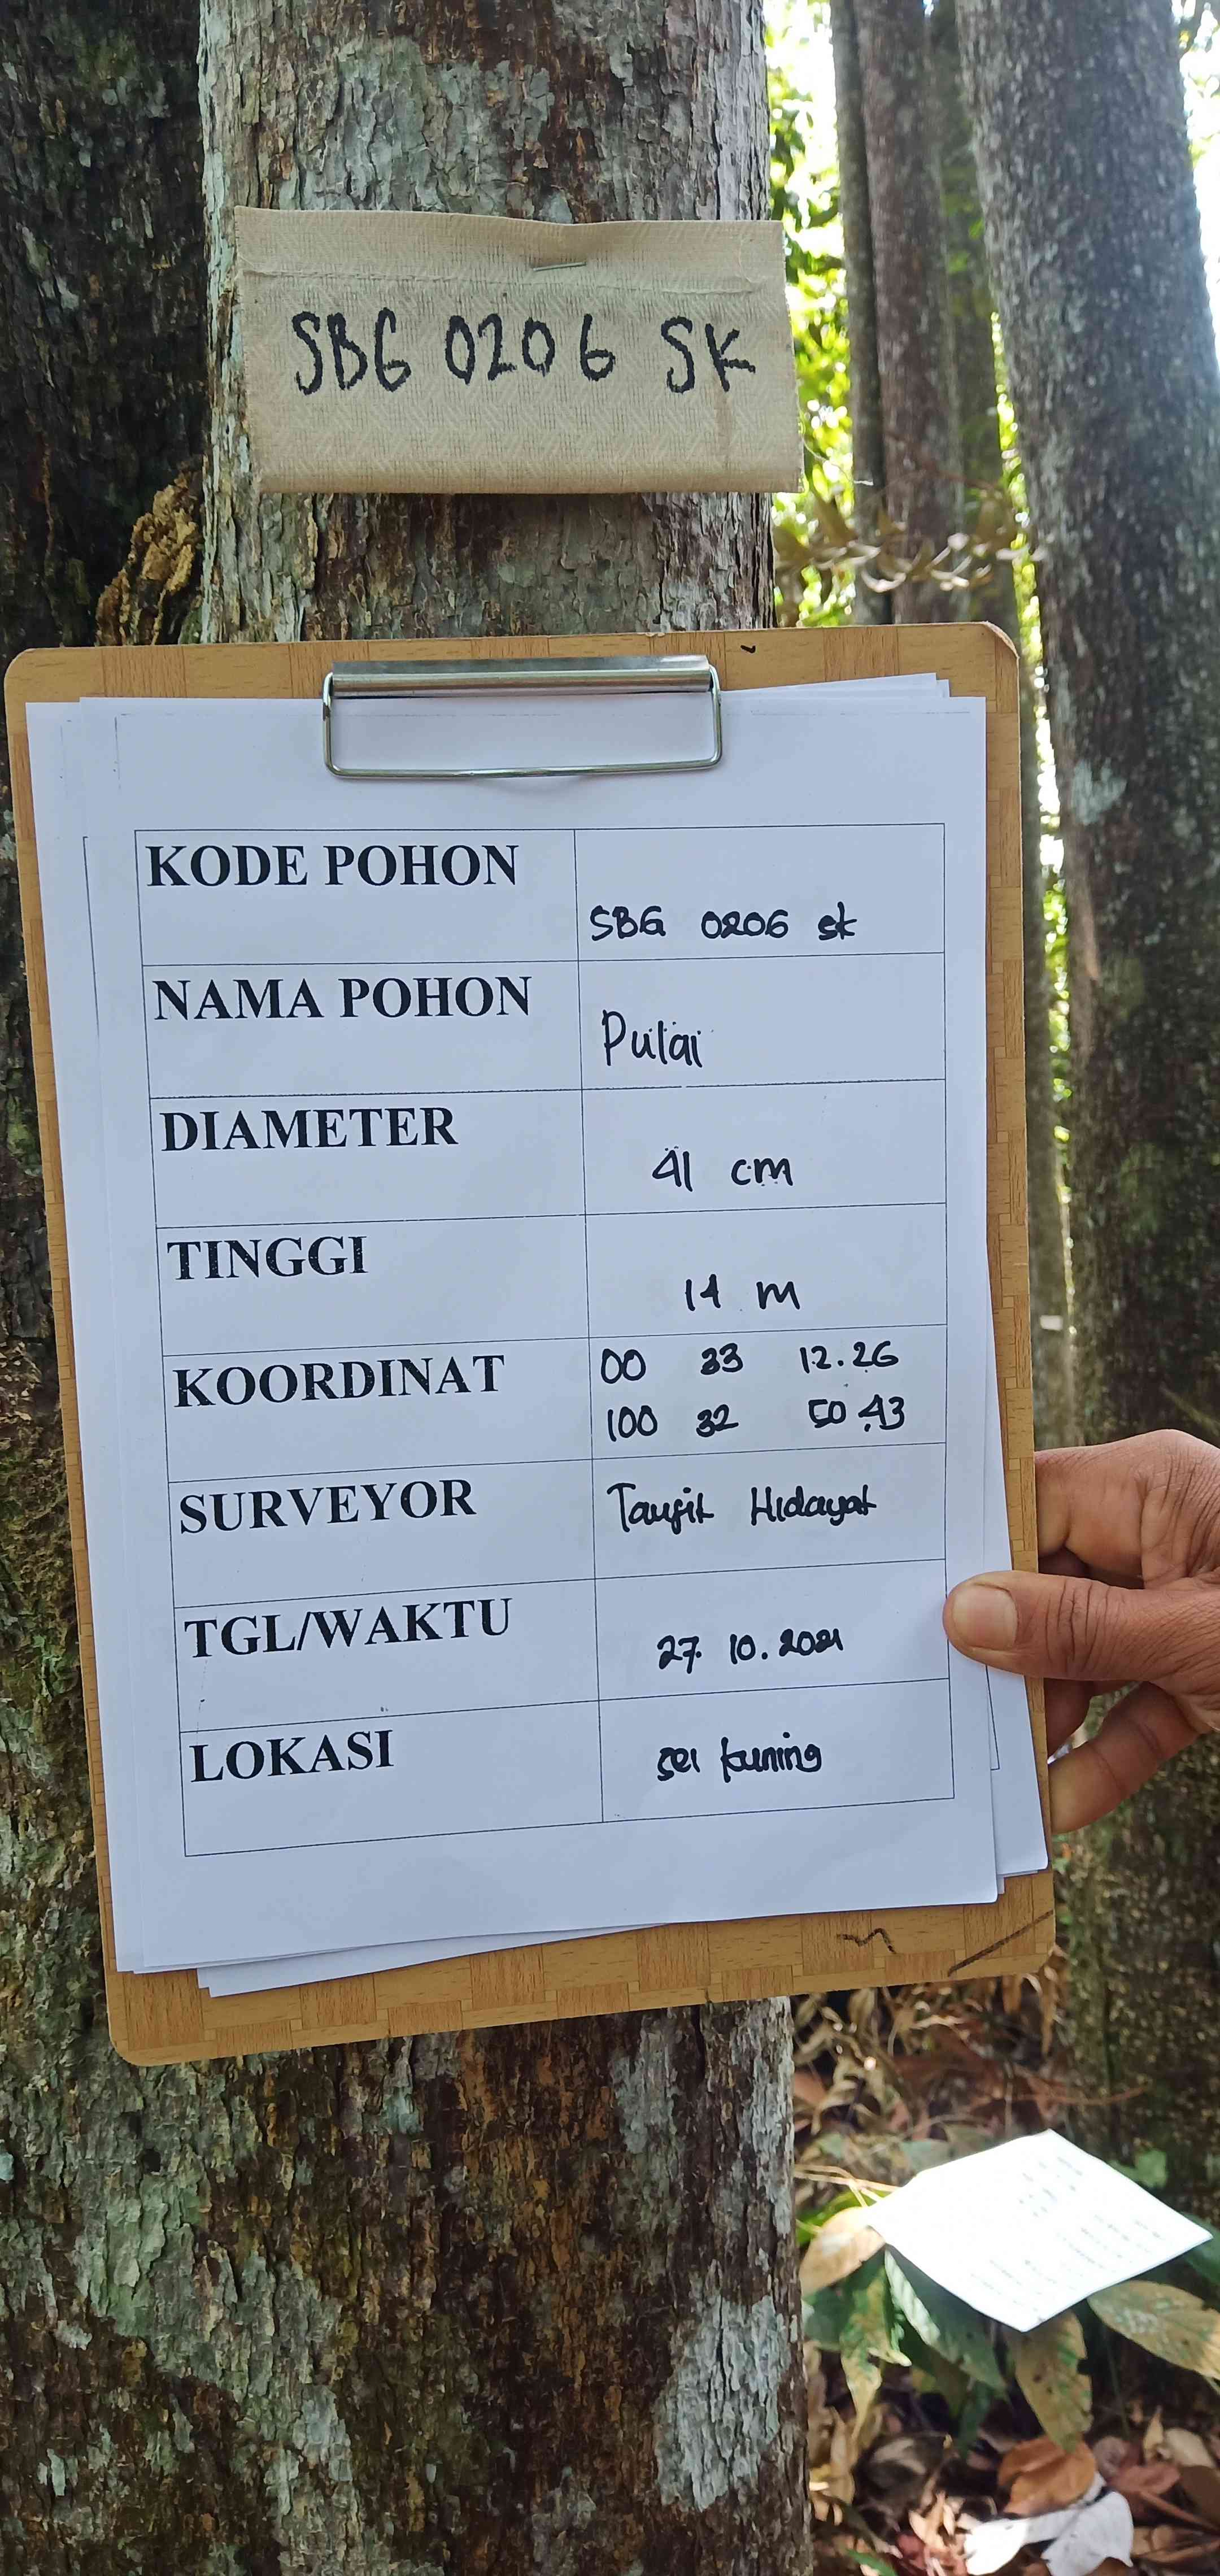 SBG 0206 SK
KODE POHON
SBG 0206 sk
NAMA POHON
Pulai
DIAMETER
41 cm
TINGGI
14 m
KOORDINAT
00 33 12.26
100 32 50.43
SURVEYOR
Taufik Hidayat
TGL/WAKTU
27. 10. 2021
LOKASI
sei kuning